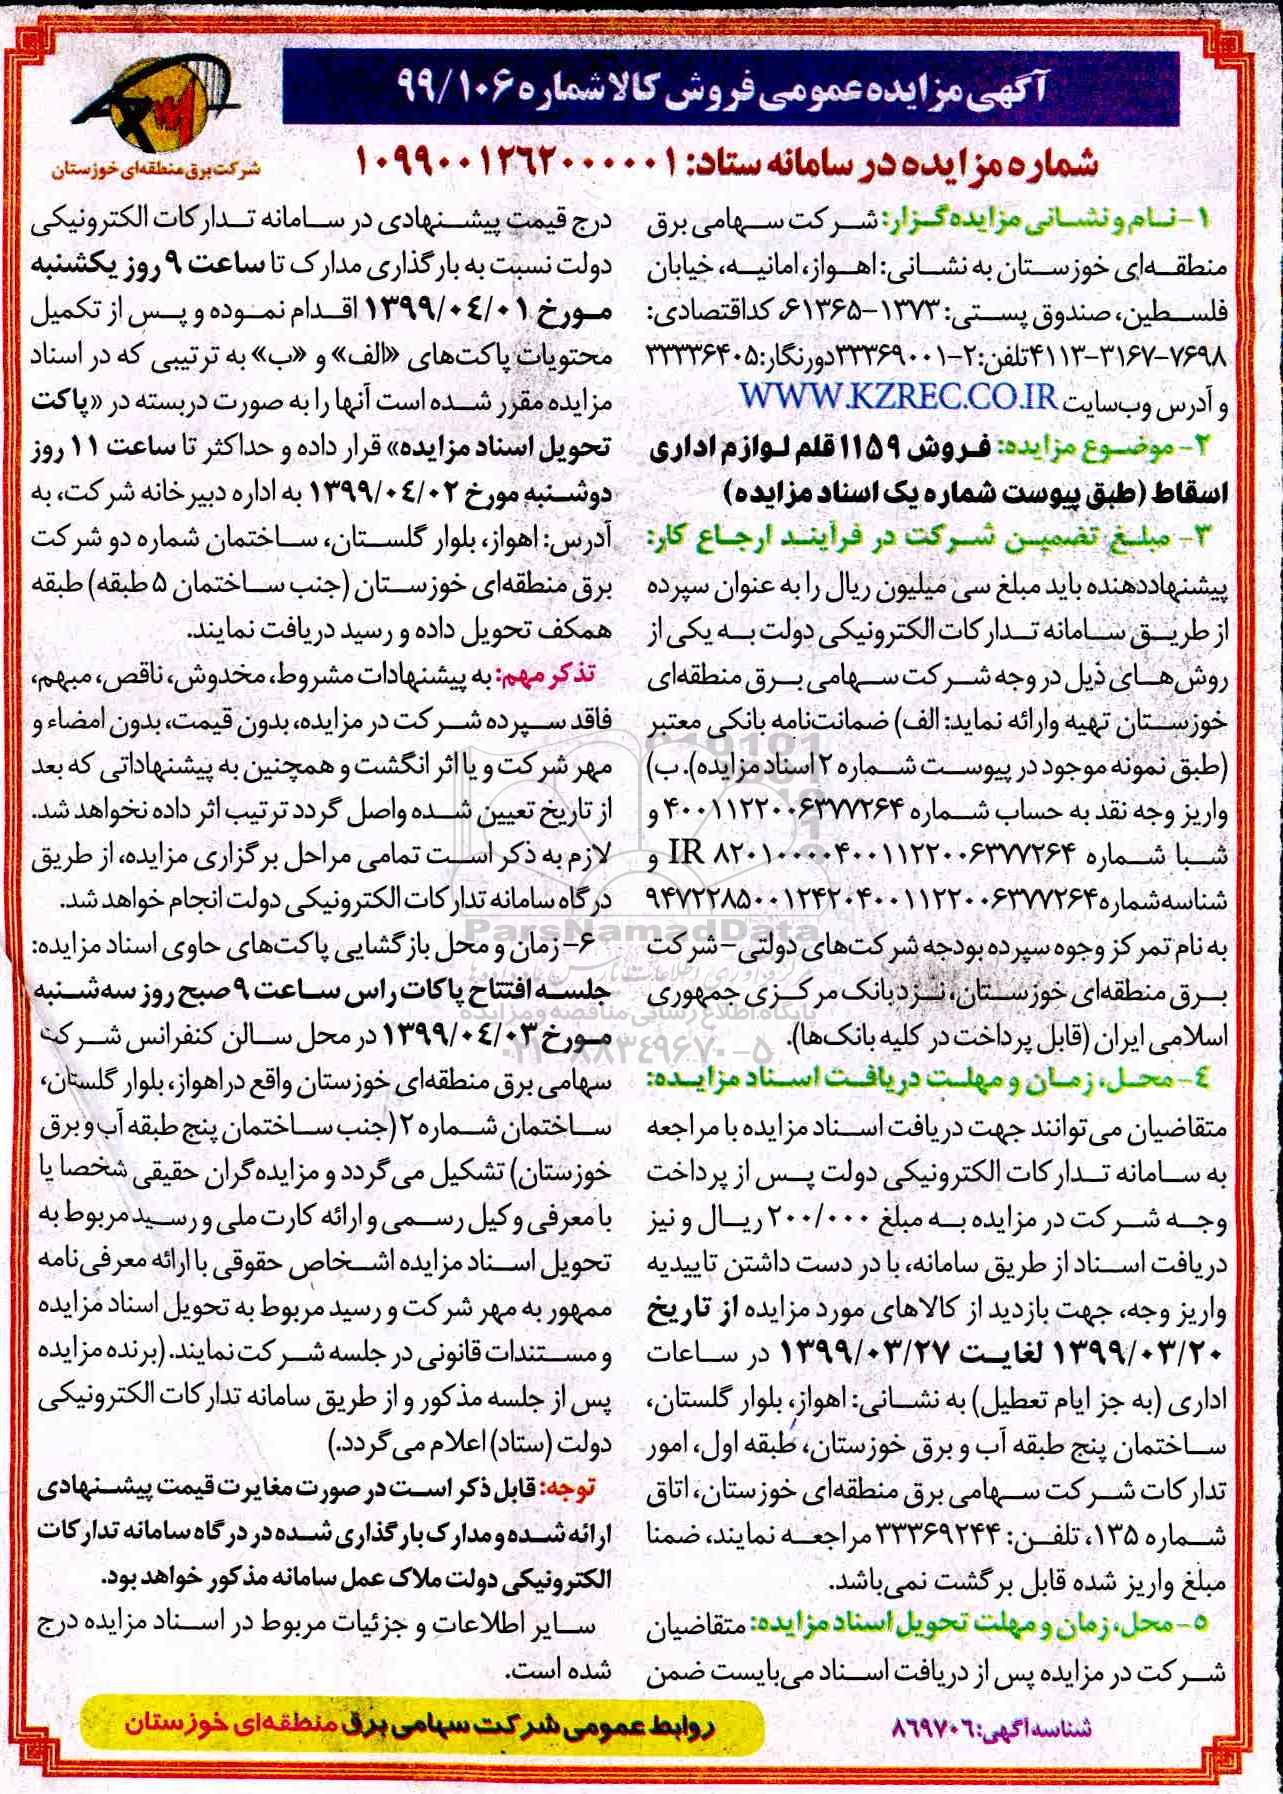 آگهی مزایده عمومی فروش کالا شماره ۹۹/۱۰۶
شماره مزایده در سامانه ستاد: ۱۰۹۹۰۰۱۲۶۲۰۰۰۰۰۱
شرکت برق منطقه‌ای خوزستان
۱- نام و نشانی مزایده‌گزار: شرکت سهامی برق
منطقه‌ای خوزستان به نشانی: اهواز، امانیه، خیابان
فلسطین، صندوق پستی: ۱۳۷۳-۶۱۳۶۵، کد اقتصادی:
۷۶۹۸-۳۱۶۷-۴۱۱۳ تلفن: ۲-۳۳۳۶۹۰۰۱ دورنگار: ۳۳۳۳۶۴۰۵
و آدرس وب‌سایت WWW.KZREC.CO.IR
۲- موضوع مزایده: فروش ۱۱۵۹ قلم لوازم اداری
اسقاط (طبق پیوست شماره یک اسناد مزایده)
۳- مبلغ تضمین شرکت در فرآیند ارجاع کار:
پیشنهاددهنده باید مبلغ سی میلیون ریال را به عنوان سپرده
از طریق سامانه تدارکات الکترونیکی دولت به یکی از
روش‌های ذیل در وجه شرکت سهامی برق منطقه‌ای
خوزستان تهیه و ارائه نماید: الف) ضمانت‌نامه بانکی معتبر
(طبق نمونه موجود در پیوست شماره ۲ اسناد مزایده). ب)
واریز وجه نقد به حساب شماره ۴۰۰۱۱۲۲۰۰۶۳۷۷۲۶۴ و
شبا شماره IR ۸۲۰۱۰۰۰۰۴۰۰۱۱۲۲۰۰۶۳۷۷۲۶۴ و
شناسه شماره ۹۴۷۲۲۸۵۰۰۱۲۴۲۰۴۰۰۱۱۲۲۰۰۶۳۷۷۲۶۴
به نام تمرکز وجوه سپرده بودجه شرکت‌های دولتی - شرکت
برق منطقه‌ای خوزستان، نزد بانک مرکزی جمهوری
اسلامی ایران (قابل پرداخت در کلیه بانک‌ها).
۴- محل، زمان و مهلت دریافت اسناد مزایده:
متقاضیان می‌توانند جهت دریافت اسناد مزایده با مراجعه
به سامانه تدارکات الکترونیکی دولت پس از پرداخت
وجه شرکت در مزایده به مبلغ ۲۰۰/۰۰۰ ریال و نیز
دریافت اسناد از طریق سامانه، با در دست داشتن تاییدیه
واریز وجه، جهت بازدید از کالاهای مورد مزایده از تاریخ
۱۳۹۹/۰۳/۲۰ لغایت ۱۳۹۹/۰۳/۲۷ در ساعات
اداری (به جز ایام تعطیل) به نشانی: اهواز، بلوار گلستان،
ساختمان پنج طبقه آب و برق خوزستان، طبقه اول، امور
تدارکات شرکت سهامی برق منطقه‌ای خوزستان، اتاق
شماره ۱۳۵، تلفن: ۳۳۳۶۹۲۴۴ مراجعه نمایند، ضمنا
مبلغ واریز شده قابل برگشت نمی‌باشد.
۵- محل، زمان و مهلت تحویل اسناد مزایده: متقاضیان
شرکت در مزایده پس از دریافت اسناد می‌بایست ضمن
درج قیمت پیشنهادی در سامانه تدارکات الکترونیکی
دولت نسبت به بارگذاری مدارک تا ساعت ۹ روز یکشنبه
مورخ ۱۳۹۹/۰۴/۰۱ اقدام نموده و پس از تکمیل
محتویات پاکت‌های «الف» و «ب» به ترتیبی که در اسناد
مزایده مقرر شده است آنها را به صورت دربسته در «پاکت
تحویل اسناد مزایده» قرار داده و حداکثر تا ساعت ۱۱ روز
دوشنبه مورخ ۱۳۹۹/۰۴/۰۲ به اداره دبیرخانه شرکت، به
آدرس: اهواز، بلوار گلستان، ساختمان شماره دو شرکت
برق منطقه‌ای خوزستان (جنب ساختمان ۵ طبقه) طبقه
همکف تحویل داده و رسید دریافت نمایند.
تذکر مهم: به پیشنهادات مشروط، مخدوش، ناقص، مبهم،
فاقد سپرده شرکت در مزایده، بدون قیمت، بدون امضاء و
مهر شرکت و یا اثر انگشت و همچنین به پیشنهاداتی که بعد
از تاریخ تعیین شده واصل گردد ترتیب اثر داده نخواهد شد.
لازم به ذکر است تمامی مراحل برگزاری مزایده، از طریق
درگاه سامانه تدارکات الکترونیکی دولت انجام خواهد شد.
۶- زمان و محل بازگشایی پاکت‌های حاوی اسناد مزایده:
جلسه افتتاح پاکات راس ساعت ۹ صبح روز سه‌شنبه
مورخ ۱۳۹۹/۰۴/۰۳ در محل سالن کنفرانس شرکت
سهامی برق منطقه‌ای خوزستان واقع در اهواز، بلوار گلستان،
ساختمان شماره ۲ (جنب ساختمان پنج طبقه آب و برق
خوزستان) تشکیل می‌گردد و مزایده‌گران حقیقی شخصا یا
با معرفی وکیل رسمی و ارائه کارت ملی و رسید مربوط به
تحویل اسناد مزایده اشخاص حقوقی با ارائه معرفی‌نامه
ممهور به مهر شرکت و رسید مربوط به تحویل اسناد مزایده
و مستندات قانونی در جلسه شرکت نمایند. (برنده مزایده
پس از جلسه مذکور و از طریق سامانه تدارکات الکترونیکی
دولت (ستاد) اعلام می‌گردد.)
توجه: قابل ذکر است در صورت مغایرت قیمت پیشنهادی
ارائه شده و مدارک بارگذاری شده در درگاه سامانه تدارکات
الکترونیکی دولت ملاک عمل سامانه مذکور خواهد بود.
سایر اطلاعات و جزئیات مربوط در اسناد مزایده درج
شده است.
شناسه آگهی: ۸۶۹۷۰۶
روابط عمومی شرکت سهامی برق منطقه‌ای خوزستان
ParsNamadData
پایگاه اطلاع رسانی مناقصه و مزایده
۰۲۱-۸۸۳۴۹۶۷۰-۵